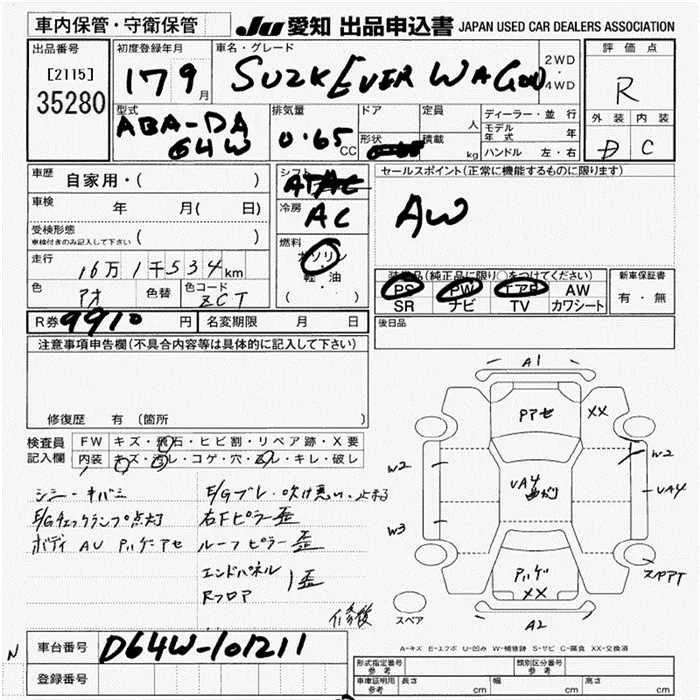 車内保管・守衛保管
JU 愛知 出品申込書 JAPAN USED CAR DEALERS ASSOCIATION
出品番号
[2115]
35280
初度登録年月
17 9 月
車名・グレード
SUZK EVER WAGON
2WD
・
4WD
評価点
R
外装 内装
D C
型式
ABA-DA
64W
排気量
0.65 CC
ドア
形状
定員
人
積載
kg
ディーラー・並行
モデル年式 年
ハンドル 左・右
車歴
自家用・( )
車検 年 月( 日)
受検形態
車検付きのみ記入して下さい ( )
走行
16万1千534km
色
アオ
色替
色コード
ZCT
シフト
AT
冷房
AC
燃料
ガソリン
・
軽油
( )
セールスポイント(正常に機能するものに限ります)
AW
装備品(純正品に限り○をつけてください)
PS PW エアB AW
SR ナビ TV カワシート
新車保証書
有・無
R券 9910 円
名変期限 月 日
後日品
注意事項申告欄(不具合内容等は具体的に記入して下さい)
修復歴 有(箇所 )
検査員 FW キズ・飛石・ヒビ割・リペア跡・X要
記入欄 内装 キズ・汚レ・コゲ・穴・スレ・キレ・破レ
シミー・キバミ
E/Gチェックランプ点灯
ボディ AU アバゲアセ
E/Gブレ・吹け悪い・止まる
右Fピラー歪
ルーフピラー歪
エンドパネル
Rフロア
歪
修複
A1
アアセ
XX
W2
W2
UA4
曲がり
UA4
W3
アバゲ
XX
スペア
スペアT
A2
A-キズ E-エクボ U-凹み W-補修跡 S-サビ C-腐食 XX-交換済
N
車台番号 DA64W-101211
登録番号
形式指定番号
参考
類別区分番号
参考
車庫証明用
参考
長さ cm
幅 cm
高さ cm